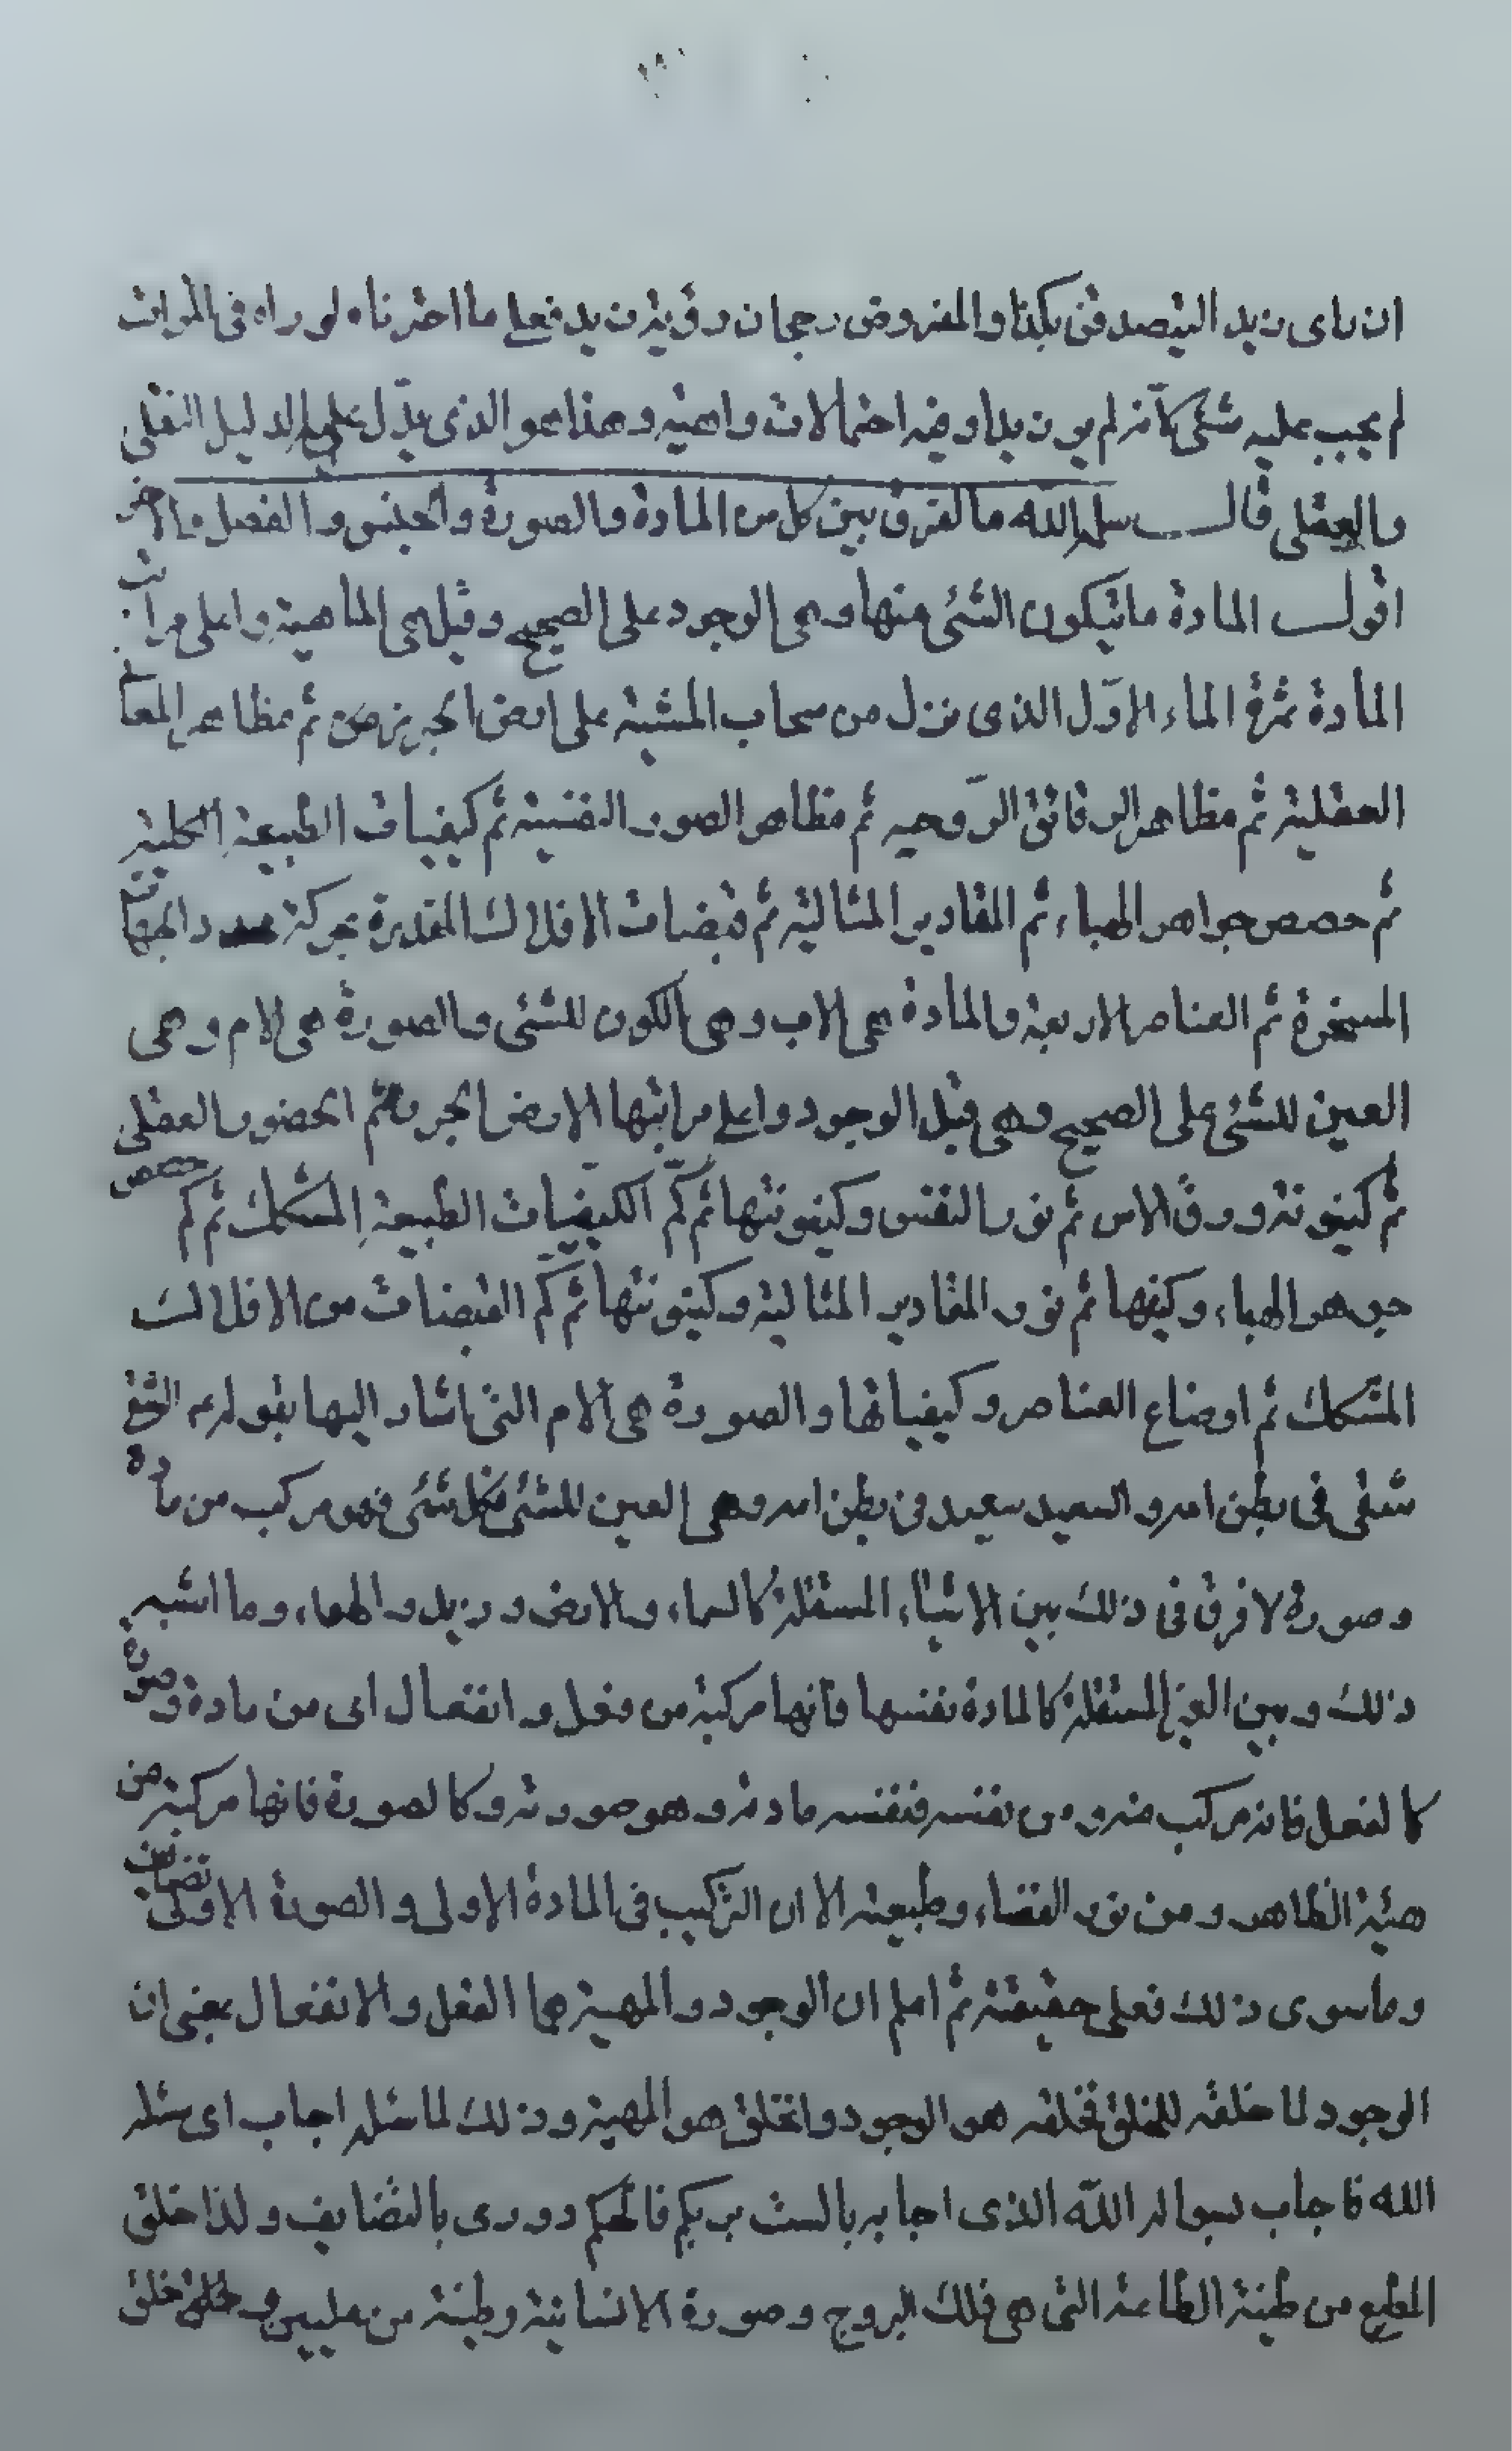 ان رای زید التصدقن بکذا والمفروض رجحان رؤیة زید فعلی ما اخترناه لو راه فی المرات
لم یجب علیه شئ کانه لم یر زیدا وفیه احتمالات واهیة وهذا هو الذی یدل علیه الدلیل النقلی
والعقلی قال سلمه الله ما الفرق بین کل من المادة والصورة والجنس والفصل والاخر
اقول المادة ما یتکون الشئ منها وهی الوجود علی الصحیح وقیل هی الماهیة واعلی مراتب
المادة ثمرة الماء الاول الذی نزل من سحاب المشیة علی ارض الجرز ثم مظاهر المعانی
العقلیة ثم مظاهر الرقائق الروحیه ثم مظاهر الصور النفسیة ثم کیفیات الطبیعة الکلیة
ثم حصص جواهر الهباء ثم المقادیر المثالیة ثم قبضات الافلاک المقدرة بحرکة محدد الجهات
المسخرة ثم العناصر الاربعة والمادة هی الاب وهی الکون للشئ والصورة هی الام وهی
العین للشئ علی الصحیح وهی قبل الوجود واعلی مراتبها الارض الجرز ثم الخضر والعقلی
ثم کینونته وورق الاس ثم نور النفس وکینونتها ثم کم الکیفیات الطبیعة المشکک ثم کم حصص
جوهر الهباء وکیفها ثم نور المقادیر المثالیة وکینونتها ثم کم القبضات من الافلاک
المشکک ثم اوضاع العناصر وکیفیاتها والصورة هی الام التی اشار الیها بقوله ع الشقی
شقی فی بطن امه والسعید سعید فی بطن امه وهی العین للشئ فکل شئ فهو مرکب من مادة
وصورة لا فرق فی ذلک بین الاشیاء المستقلة کالسماء والارض وزید والهواء وما اشبه
ذلک وبین الغیر المستقلة کالمادة نفسها فانها مرکبة من فعل وانفعال ای من مادة وصورة
کالفعل فانه مرکب منه ومن نفسه فنفسه مادته وهو صورته وکالصورة فانها مرکبة من
هیئة الظاهر ومن نور القضاء وطبیعته الا ان الترکیب فی المادة الاولی والصورة الاولی تضایف
وما سوی ذلک فعلی حقیقته ثم اعلم ان الوجود والمهیة هما الفعل والانفعال بمعنی ان
الوجود لما خلقه للخلق فخلقه هو الوجود وانخلق هو المهیة وذلک لما سئله اجاب ای سئله
الله فاجاب بسواله الله الذی اجابه بالست بربکم فالحکم دوری بالتضایف ولذا خلق
المطیع من طینة الطاعة التی هی فلک البروج وصورة الانسانیة وطینة من علیین وخلق